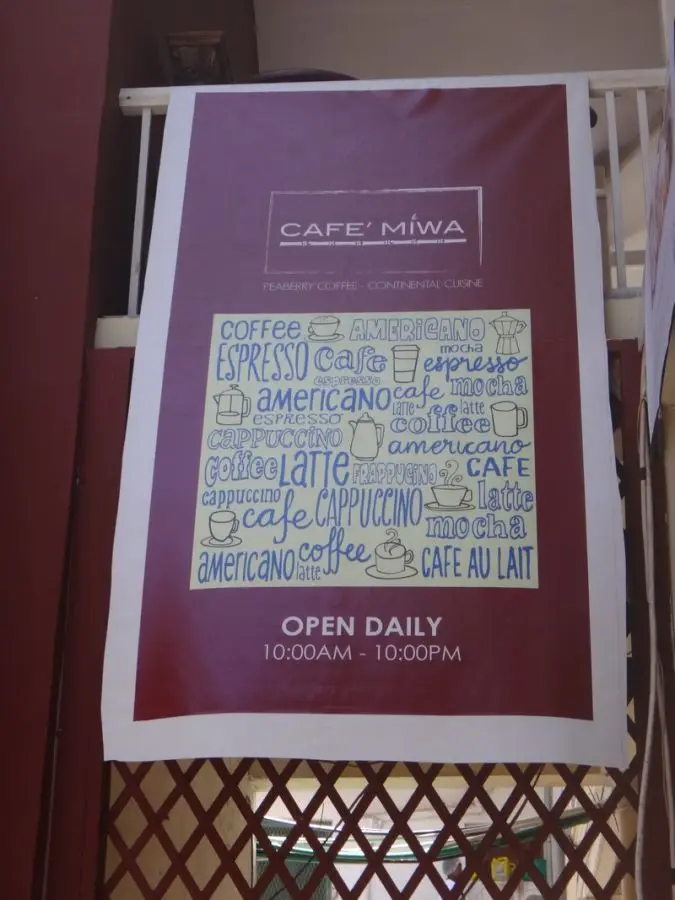 CAFE' MiWA
PEABERRY COFFEE - CONTINENTAL CUISINE
COFFEE AMERICANO
ESPRESSO cafe mocha espresso
espresso
americano cafe mocha
espresso latte latte coffee
CAPPUCCINO americano
coffee LATTE FRAPPUCINO CAFE
cappuccino cafe CAPPUCCINO latte
mocha
americano coffee latte CAFE AU LAIT
OPEN DAILY
10:00AM - 10:00PM